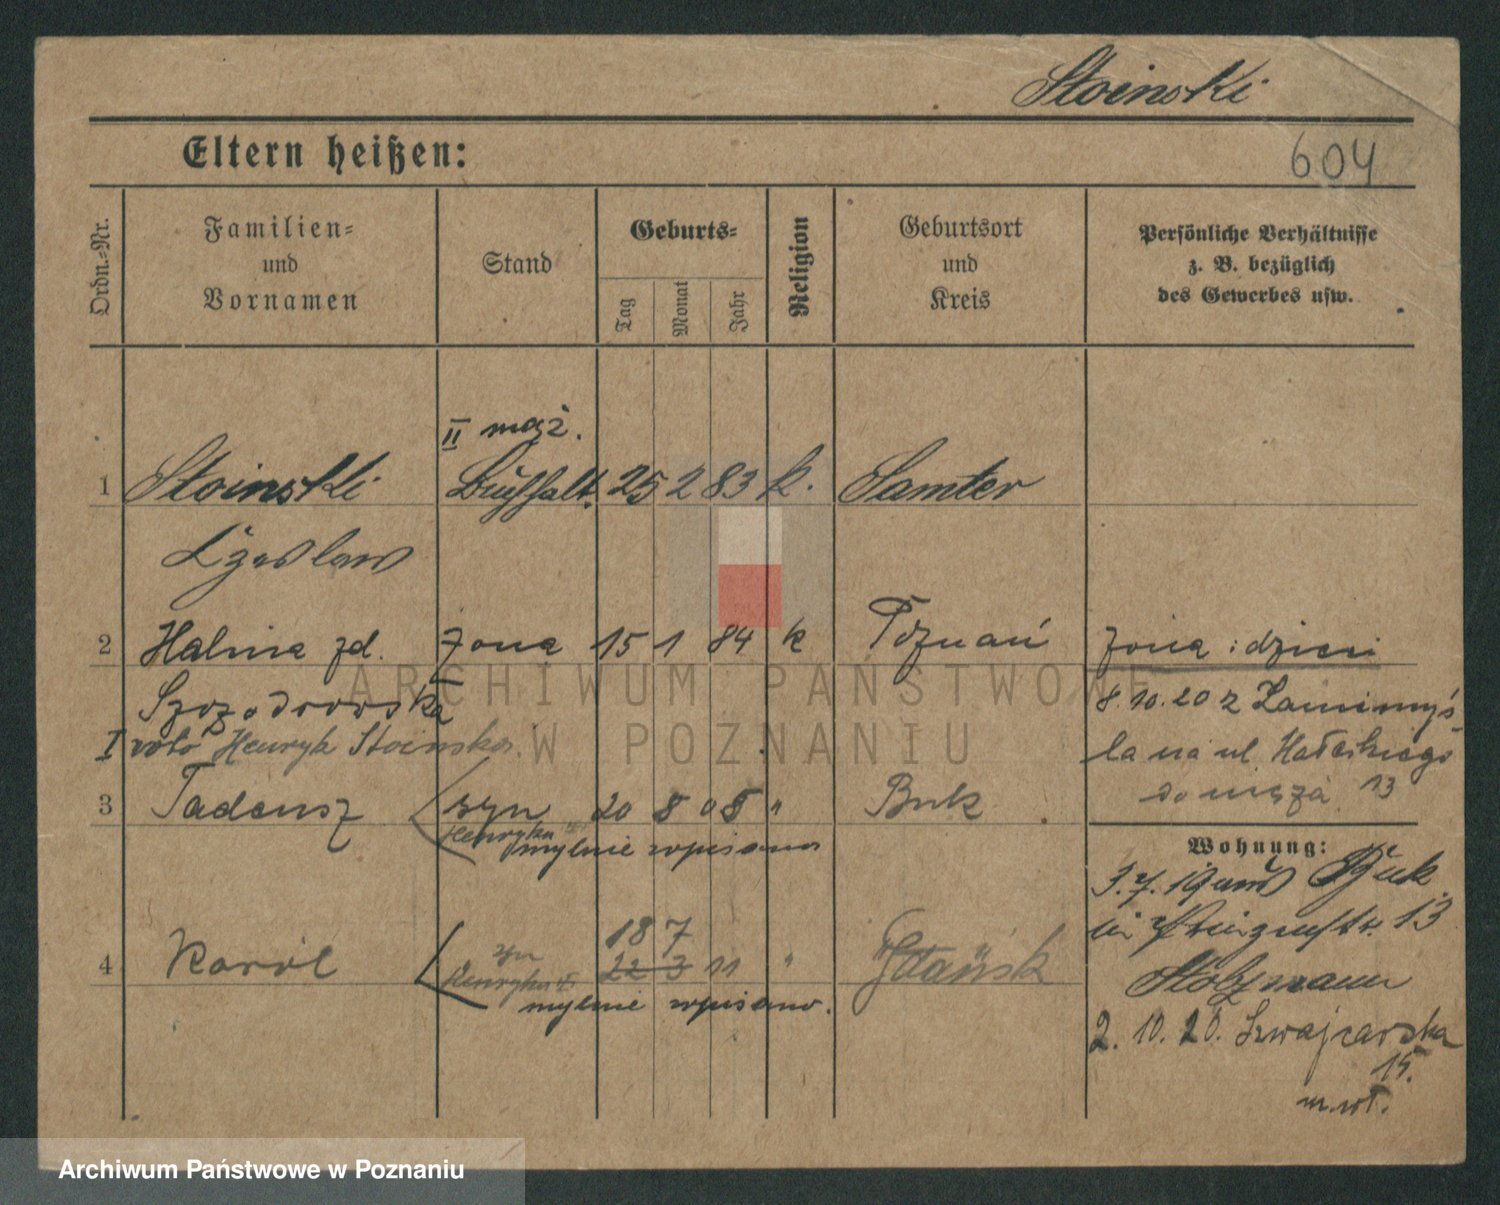 Stoinski
Eltern heißen:
604
Ordn.-Nr.
Familien-
und
Vornamen
Stand
Geburts-
Tag
Monat
Jahr
Religion
Geburtsort
und
Kreis
Persönliche Verhältnisse
z. B. bezüglich
des Gewerbes usw.
II mąż.
1 Stoinski Buchhalt. 25 2 83 k. Samter
Czeslaw
2 Halina zd. żona 15 1 84 k Poznań żona i dzieci
Szczodrowska
8.10.20 z
I voto Henryk Stoinski
la na ul.
3 Tadeusz syn 20 8 08 " Buk
13
Henryka
mylnie wpisano
Wohnung:
3.7.19 Buk
13
18 7
4 Karol syn 22 3 11 " Gdańsk
Henryka
mylnie wpisano.
Stolzmann
2. 10. 20. Szwajcarska
15.
m. wł.
ARCHIWUM PAŃSTWOWE
W POZNANIU
Archiwum Państwowe w Poznaniu